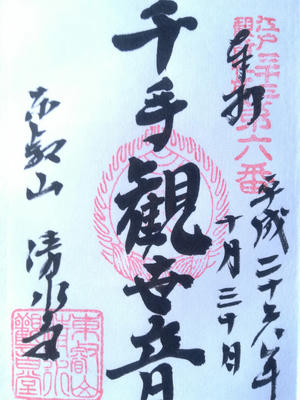 奉拝
江戸三十三
観音札所第六番
平成二十六年
十月三十日
千手観世音
東叡山
清水寺
東叡山
清水
観音堂